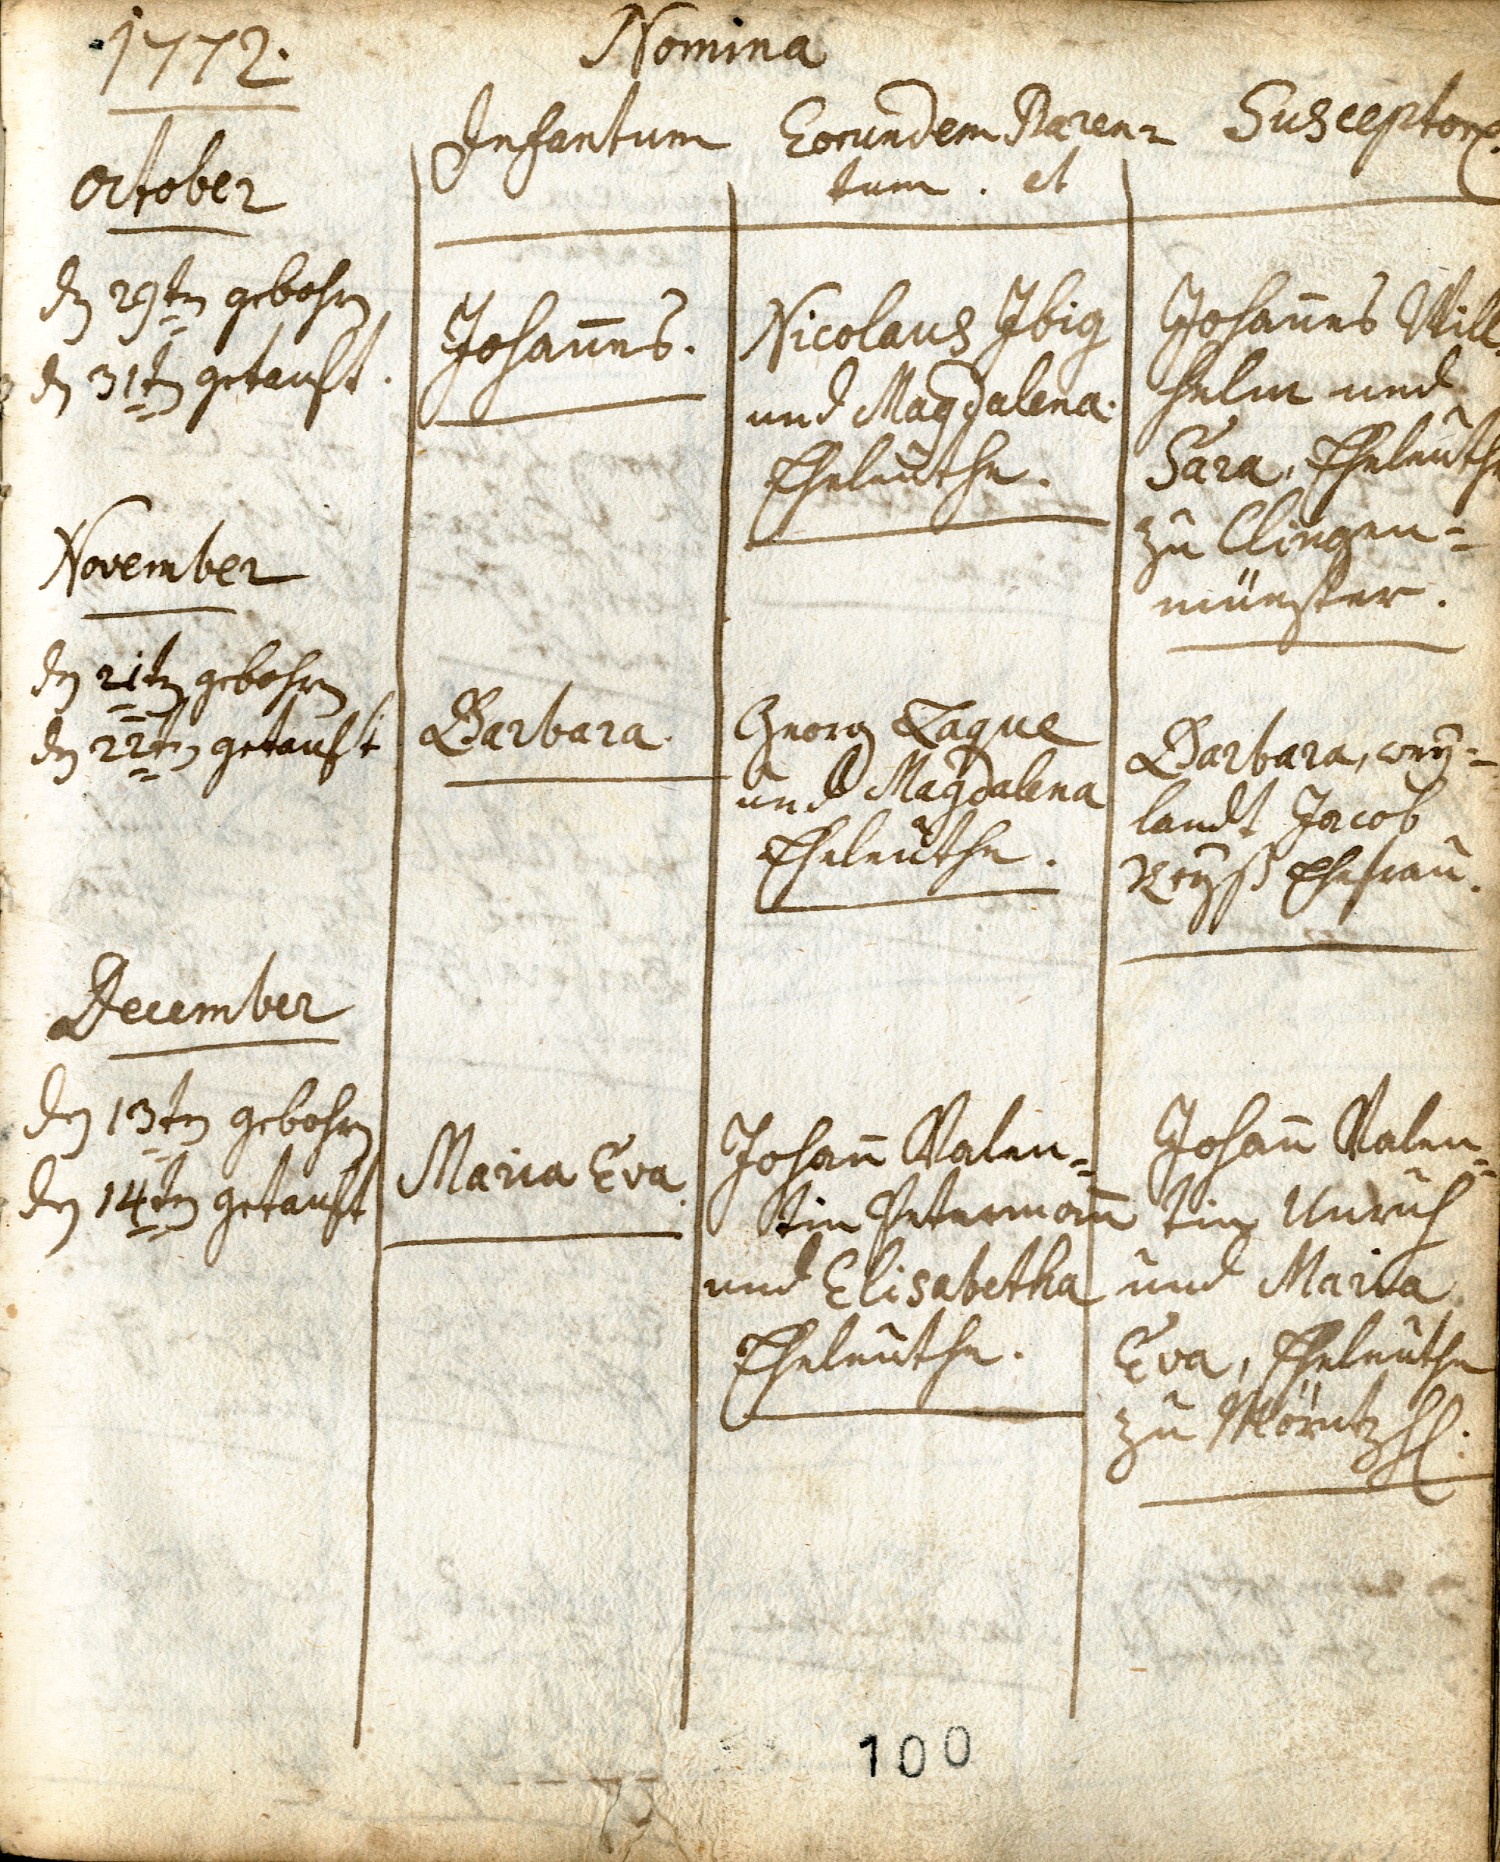 1772.
Nomina
Infantum
Eorundem Paren=
tum. et
Susceptor.
October
dn 29tn gebohrn
dn 31tn getauft.
Johannes.
Nicolaus Ibig
und Magdalena.
Eheleuthe.
Johannes Will
helm und
Sara, Eheleuthe
zu Clingen=
münster.
November
dn 21tn gebohrn
dn 22tn getauft
Barbara.
Georg Laque
und Magdalena
Eheleuthe.
Barbara, wey=
landt Jacob
Reyß Ehefrau.
December
den 13tn gebohrn
den 14tn getauft
Maria Eva.
Johann Valen=
tin Petermann
und Elisabetha
Eheleuthe.
Johann Valen=
tin Unruh
und Maria
Eva, Eheleuthe
zu
100